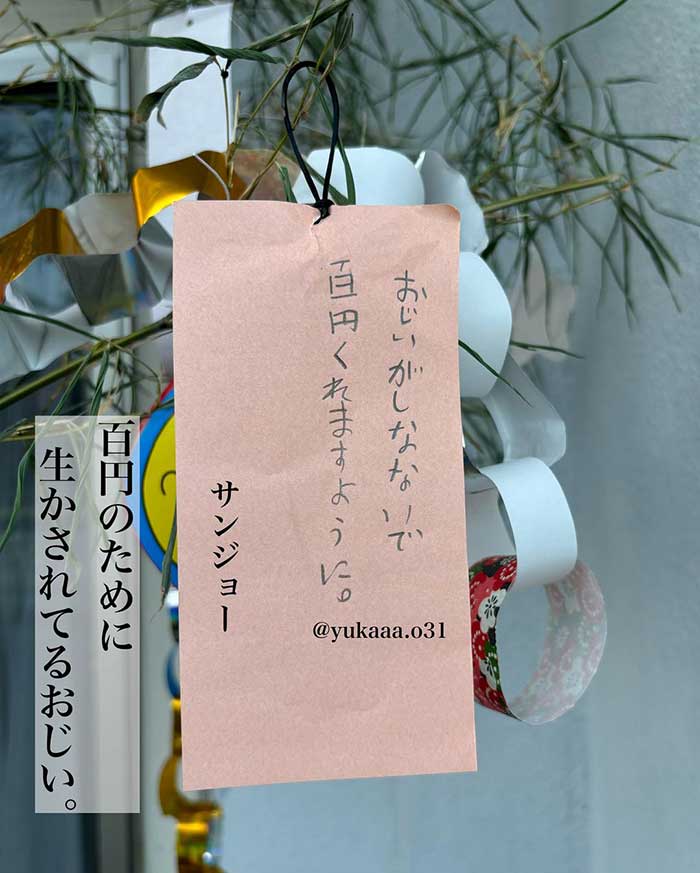 おじいがしなないで
百円くれますように。
サンジョー
@yukaaa.o31
百円のために
生かされてるおじい。